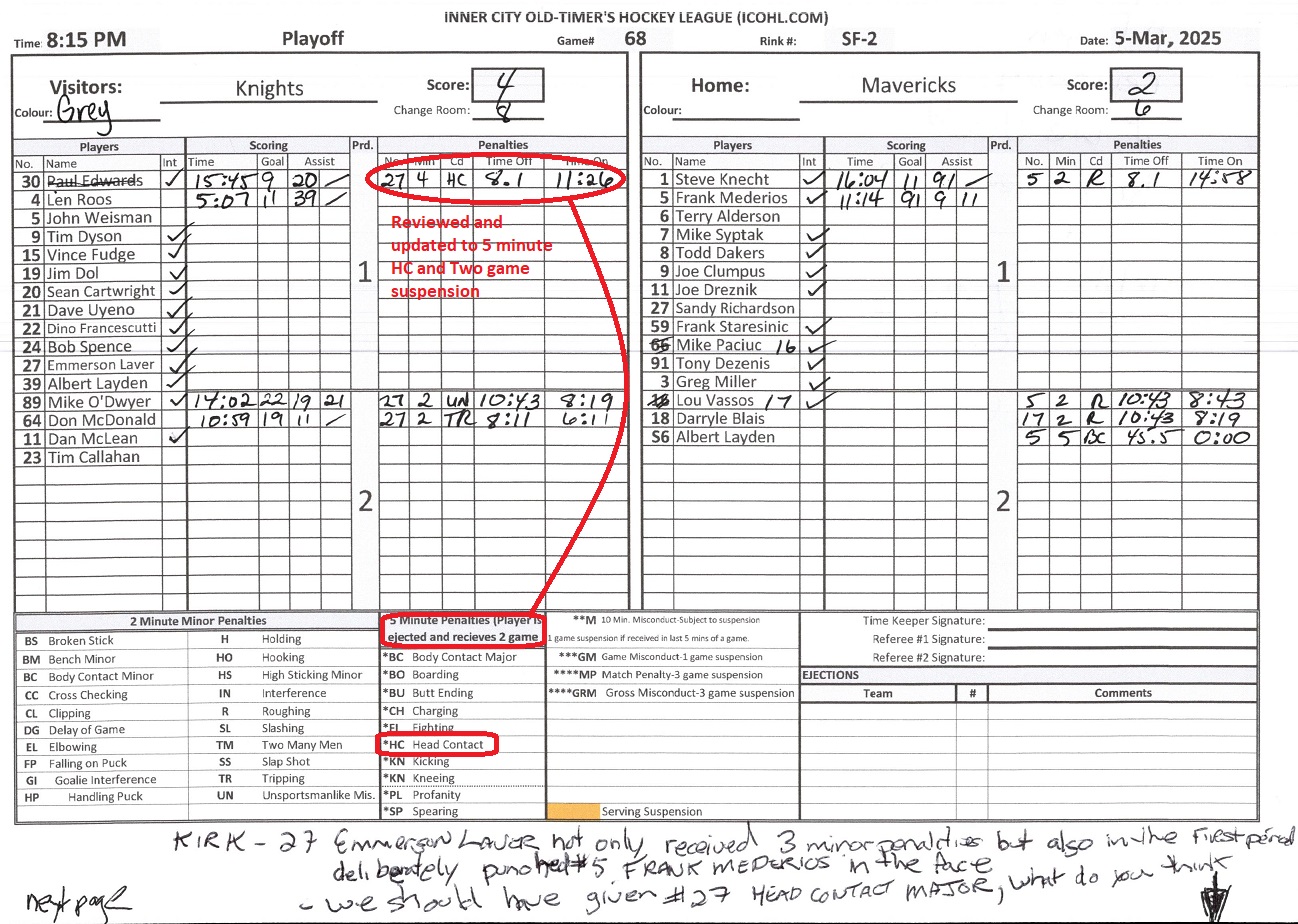 INNER CITY OLD-TIMER'S HOCKEY LEAGUE (ICOHL.COM)
Time: 8:15 PM Playoff Game# 68 Rink #: SF-2 Date: 5-Mar, 2025
Visitors: Knights Score: 4 Home: Mavericks Score: 2
Colour: Grey Change Room: 8 Colour: Change Room: 6
Players Scoring Prd. Penalties Players Scoring Prd. Penalties
No. Name Int Time Goal Assist No Min Cd Time Off Time On No. Name Int Time Goal Assist No. Min Cd Time Off Time On
30 Paul Edwards ✓ 15:45 9 20 / 27 4 HC 8.1 11:26 1 Steve Knecht ✓ 16:04 11 91 / 5 2 R 8.1 14:58
4 Len Roos 5:07 11 39 / 5 Frank Mederios ✓ 11:14 91 9 11
5 John Weisman Reviewed and 6 Terry Alderson
9 Tim Dyson ✓ updated to 5 minute 7 Mike Syptak ✓
15 Vince Fudge ✓ HC and Two game 8 Todd Dakers ✓
19 Jim Dol ✓ 1 suspension 9 Joe Clumpus ✓ 1
20 Sean Cartwright ✓ 11 Joe Dreznik ✓
21 Dave Uyeno ✓ 27 Sandy Richardson
22 Dino Francescutti ✓ 59 Frank Staresinic ✓
24 Bob Spence ✓ 66 Mike Paciuc 16 ✓
27 Emmerson Laver ✓ 91 Tony Dezenis ✓
39 Albert Layden ✓ 3 Greg Miller ✓
89 Mike O'Dwyer ✓ 14:02 22 19 21 27 2 UN 10:43 8:19 Lou Vassos 17 ✓ 5 2 R 10:43 8:43
64 Don McDonald 10:59 19 11 / 27 2 TR 8:11 6:11 18 Darryle Blais 17 2 R 10:43 8:19
11 Dan McLean ✓ S6 Albert Layden 5 5 BC 45.5 0:00
23 Tim Callahan
2 2
2 Minute Minor Penalties 5 Minute Penalties (Player is **M 10 Min. Misconduct-Subject to suspension Time Keeper Signature:
BS Broken Stick H Holding ejected and recieves 2 game 1 game suspension if received in last 5 mins of a game. Referee #1 Signature:
BM Bench Minor HO Hooking *BC Body Contact Major ***GM Game Misconduct-1 game suspension Referee #2 Signature:
BC Body Contact Minor HS High Sticking Minor *BO Boarding ****MP Match Penalty-3 game suspension EJECTIONS
CC Cross Checking IN Interference *BU Butt Ending ****GRM Gross Misconduct-3 game suspension Team # Comments
CL Clipping R Roughing *CH Charging
DG Delay of Game SL Slashing *FI Fighting
EL Elbowing TM Two Many Men *HC Head Contact
FP Falling on Puck SS Slap Shot *KN Kicking
GI Goalie Interference TR Tripping *KN Kneeing
HP Handling Puck UN Unsportsmanlike Mis. *PL Profanity
*SP Spearing Serving Suspension
KIRK - 27 Emmerson Laver not only received 3 minor penalties but also in the First period
deliberately punched #5 FRANK MEDERIOS in the face
- we should have given #27 HEAD CONTACT MAJOR, what do you think
next page